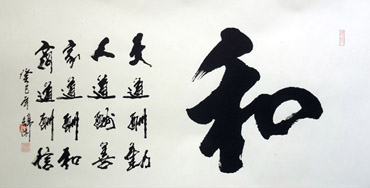 和
天道酬勤
人道酬善
家道酬和
商道酬信
癸巳年